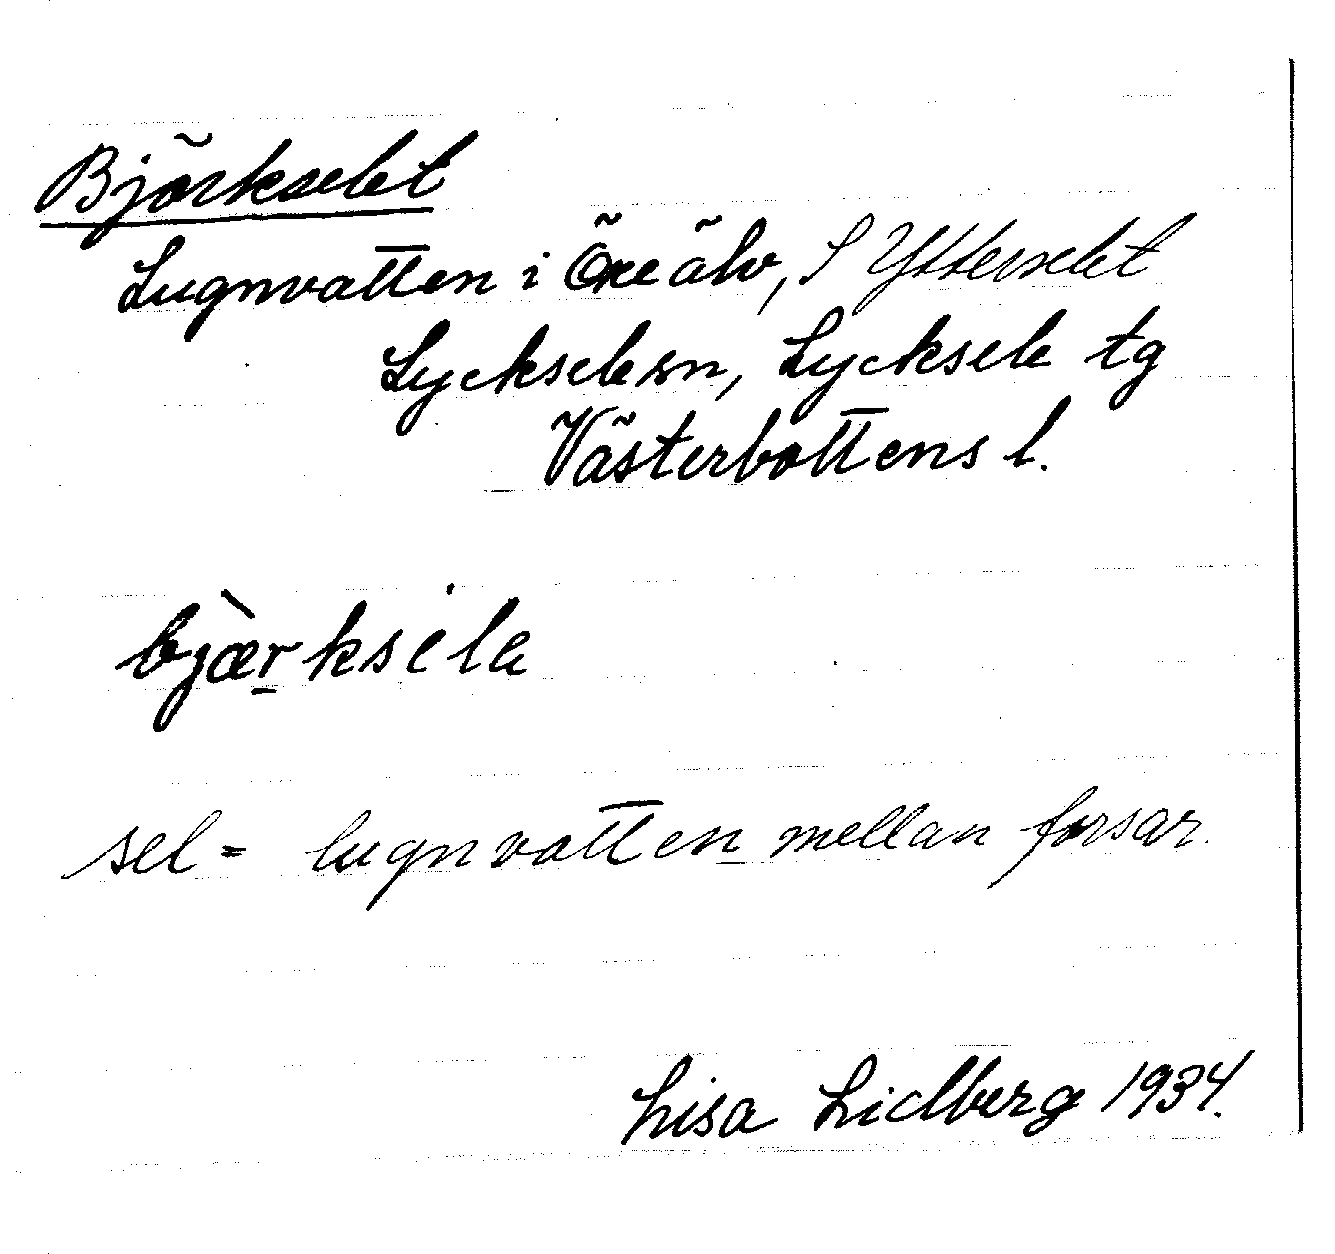 Björkselet
Lugnvatten i Öre älv, S Ytterselet
Lycksele sn, Lycksele tg
Västerbottens l.
bjæ̀rksela
sel = lugnvatten mellan forsar.
Lisa Lidberg 1934.